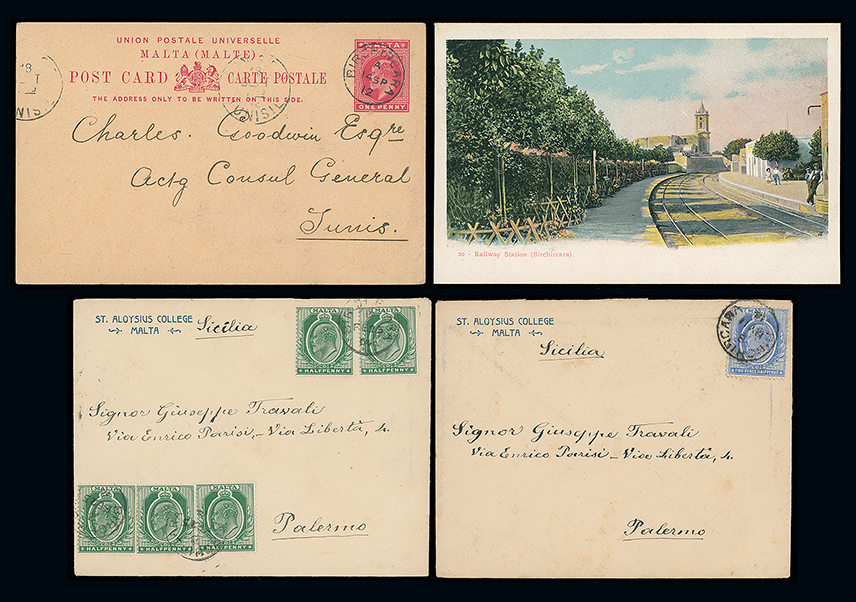 UNION POSTALE UNIVERSELLE
MALTA (MALTE)
POST CARD CARTE POSTALE
THE ADDRESS ONLY TO BE WRITTEN ON THIS SIDE.
MALTA
ONE PENNY
BIRCHIRCARA
SP
12
Charles. Goodwin Esqre
Actg Consul General
Tunis.
20 - Railway Station (Birchircara).
ST. ALOYSIUS COLLEGE
MALTA
Sicilia
MALTA MALTA
HALFPENNY HALFPENNY
Signor Giuseppe Travali
Via Enrico Parisi, - Via Libertà, 4.
MALTA MALTA MALTA
HALFPENNY HALFPENNY HALFPENNY
Palermo
ST. ALOYSIUS COLLEGE
MALTA
Sicilia
TWO PENCE HALFPENNY
Signor Giuseppe Travali
Via Enrico Parisi - Via Libertà, 4.
Palermo